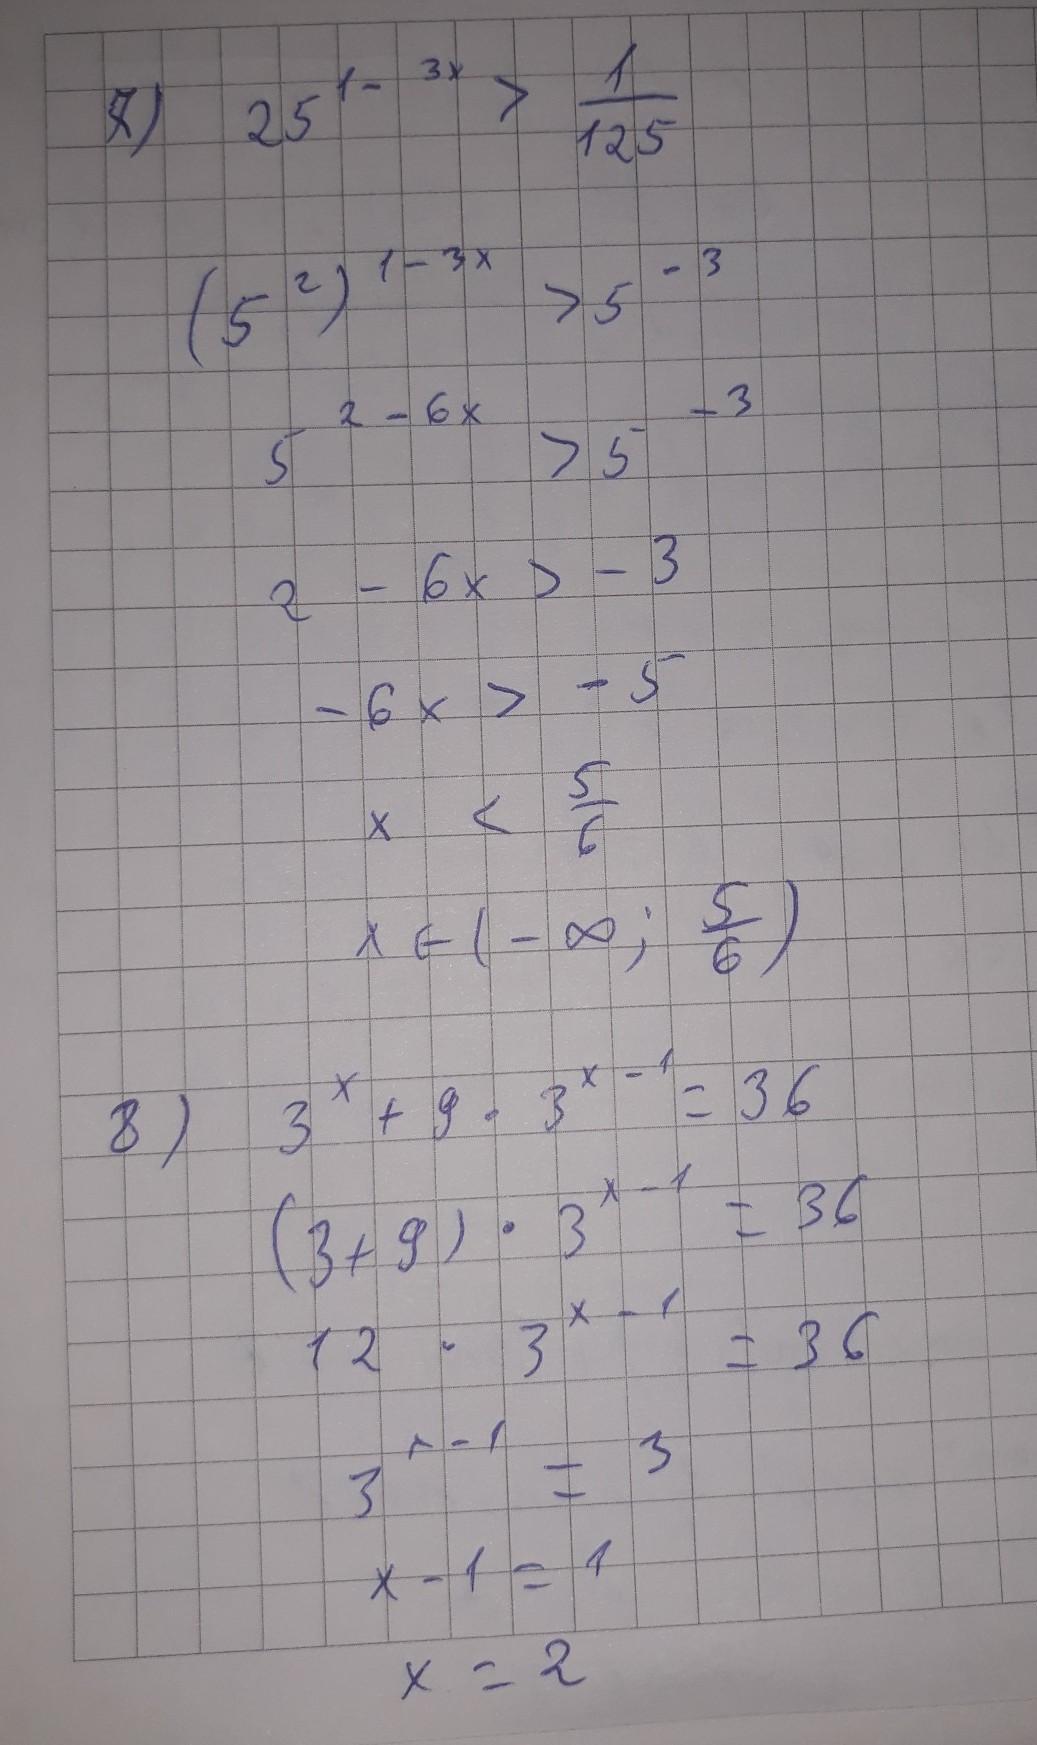 7) 25^{1-3x} > \frac{1}{125}
(5^2)^{1-3x} > 5^{-3}
5^{2-6x} > 5^{-3}
2 - 6x > -3
-6x > -5
x < \frac{5}{6}
x ∈ (-∞; \frac{5}{6})
8) 3^x + 9 · 3^{x-1} = 36
(3+9) · 3^{x-1} = 36
12 · 3^{x-1} = 36
3^{x-1} = 3
x - 1 = 1
x = 2